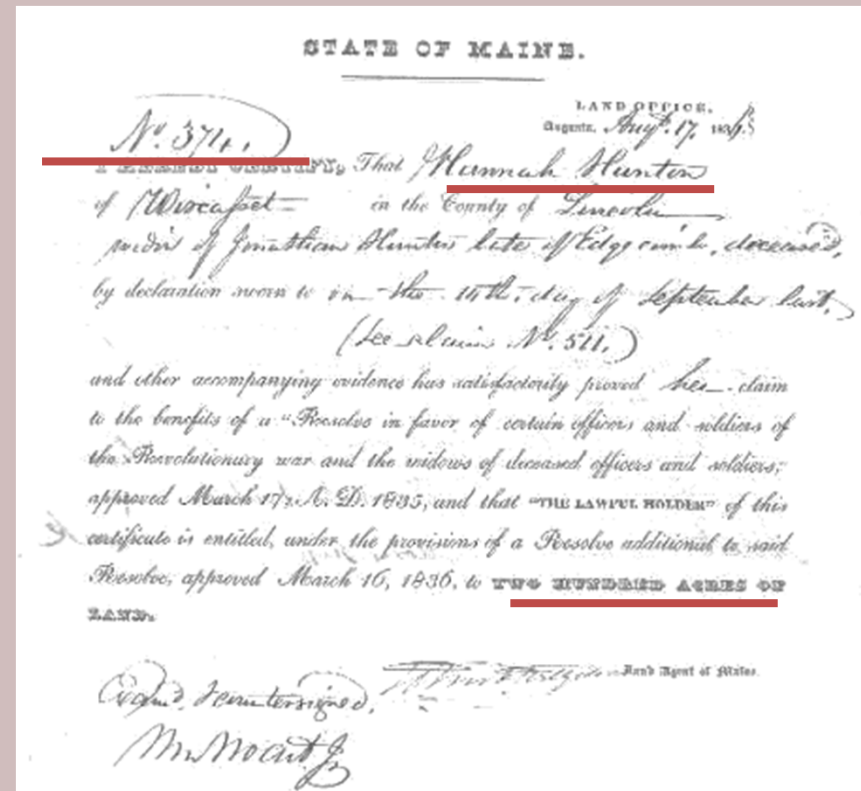 STATE OF MAINE.
LAND OFFICE,
Augusta, Augt. 17, 183
No. 374.
I HEREBY CERTIFY, That Hannah Hunton
of Wiscasset in the County of Lincoln
widow of Jonathan Hunton late of Edgecomb, deceased,
by declaration sworn to on the 14th. day of September last,
(See claim No. 511.)
and other accompanying evidence has satisfactorily proved her claim
to the benefits of a "Resolve in favor of certain officers and soldiers of
the Revolutionary war and the widows of deceased officers and soldiers,"
approved March 17, A. D. 1835, and that "THE LAWFUL HOLDER" of this
certificate is entitled, under the provisions of a Resolve additional to said
Resolve, approved March 16, 1836, to TWO HUNDRED ACRES OF
LAND.
Land Agent of Maine.
Exam'd. & countersigned.